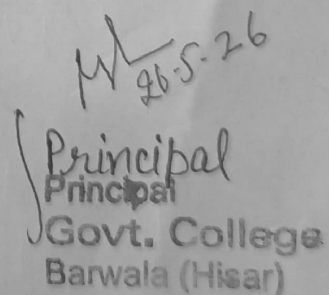 26.5.26
Principal
Principal
Govt. College
Barwala (Hisar)